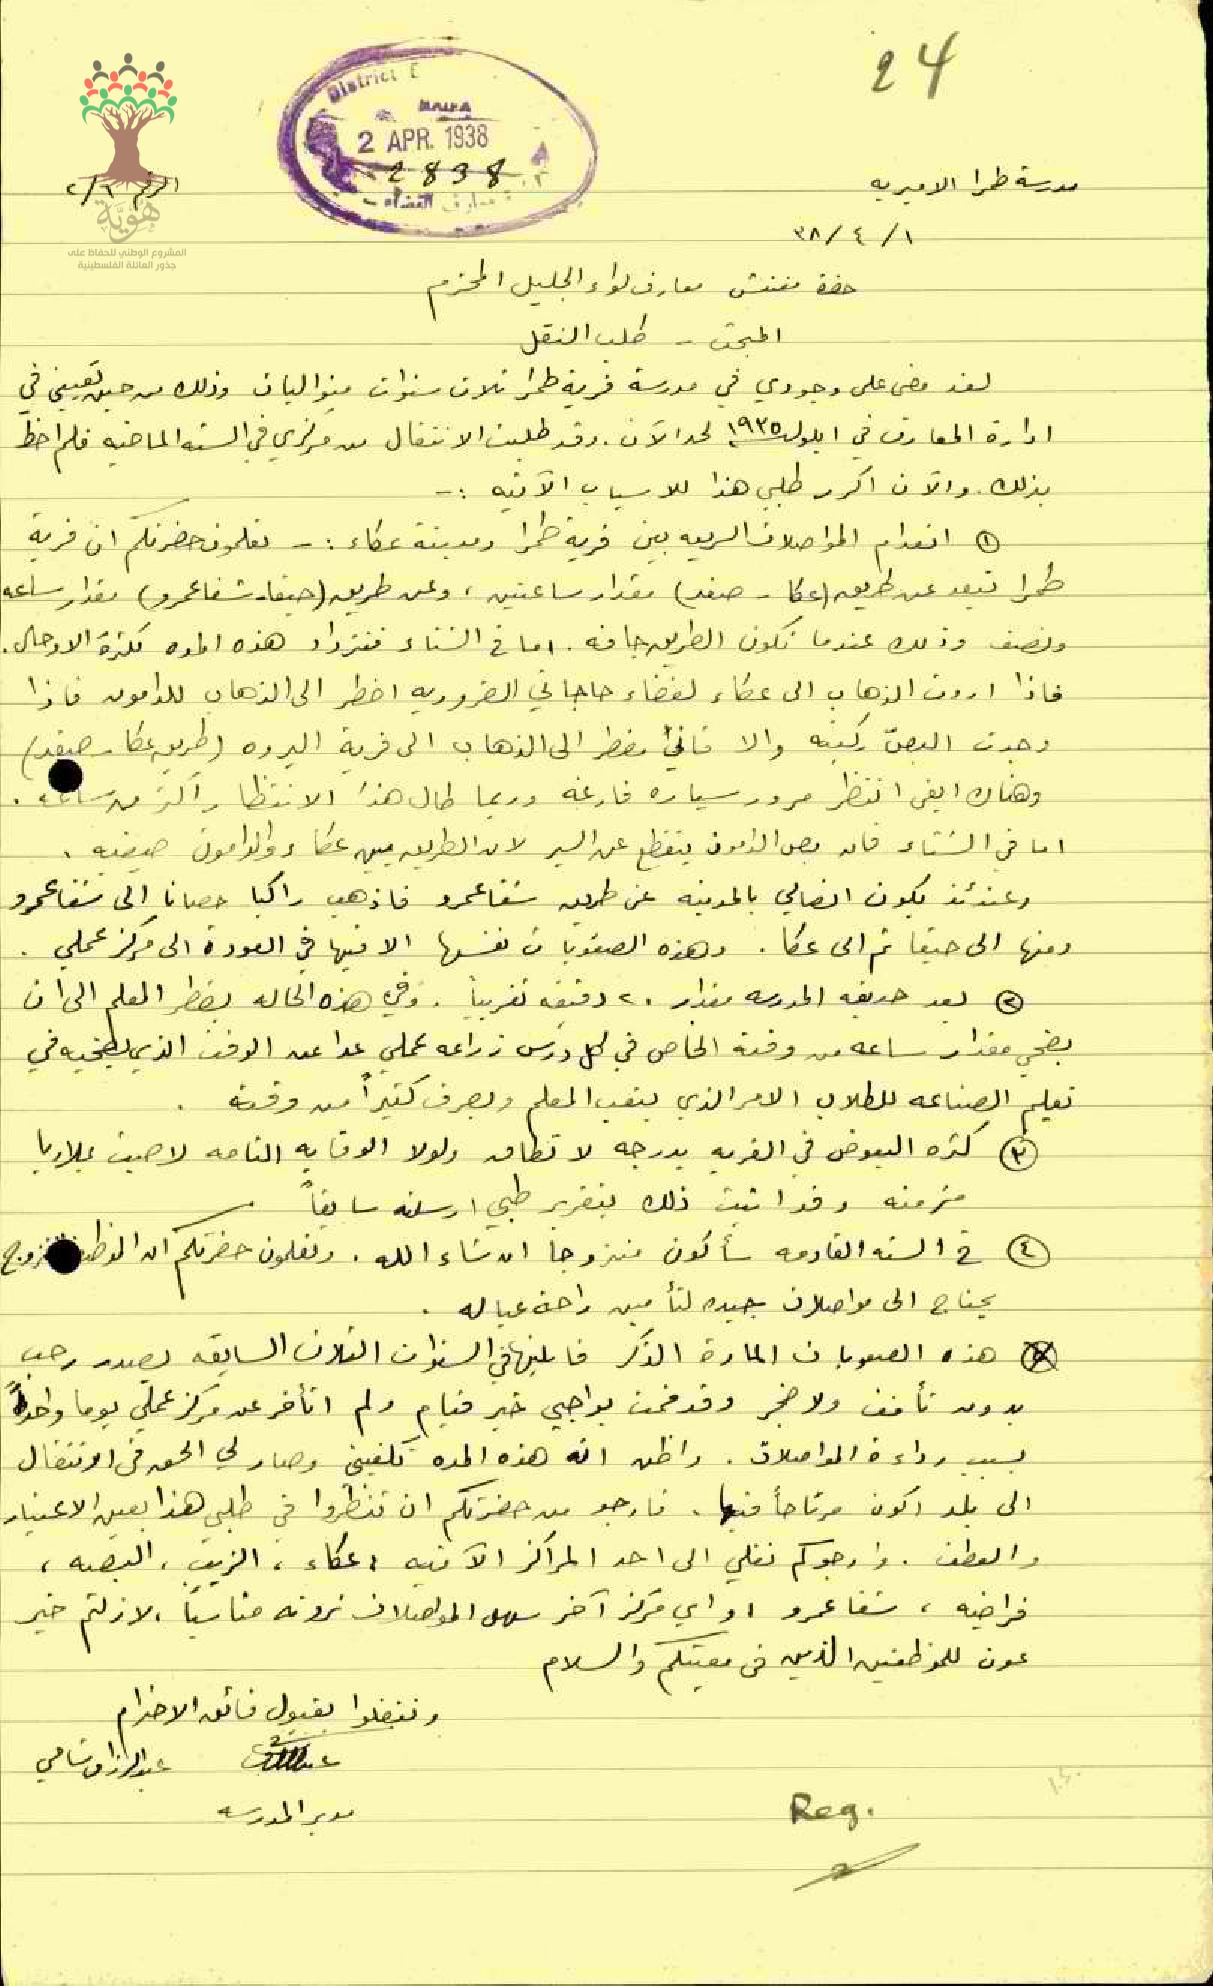 24
District
HAIFA
2 APR. 1938
2838
معارف القضاء
هُويَّة
المشروع الوطني للحفاظ على
جذور العائلة الفلسطينية
مدرسة طمرا الاميريه
الرقم ٢/٦
١/٤/٣٨
حضرة مفتش معارف لواء الجليل المحترم
المبحث – طلب النقل
لقد مضى على وجودي في مدرسة قرية طمرا ثلاث سنوات متواليات وذلك من حين تعييني في
ادارة المعارف في ايلول ١٩٣٥ لحد الآن. وقد طلبت الانتقال من مركزي في السنه الماضيه فلم احظَ
بذلك. والآن اكرر طلبي هذا للاسباب الآتيه :–
١ انعدام المواصلات السريعه بين قرية طمرا ومدينة عكاء :– تعلمون حضرتكم ان قرية
طمرا تبعد عن طريق (عكا – صفد) مقدار ساعتين ، وعن طريق (حيفا – شفاعمرو) مقدار ساعه
ونصف وذلك عندما تكون الطريق جافه. اما في الشتاء فتزداد هذه المده لكثرة الاوحال.
فاذا اردت الذهاب الى عكاء لقضاء حاجاتي الضروريه اضطر الى الذهاب للدامون فاذا
وجدت البص ركبته والا فاني مضطر الى الذهاب الى قرية البروه (طريق عكا – صفد)
وهناك ابقى انتظر مرور سياره فارغه وربما طال هذا الانتظار اكثر من ساعه.
اما في الشتاء فان بص الدامون ينقطع عن السير لان الطريق بين عكاء والدامون صيفيه.
وعندئذ يكون اتصالي بالمدينه عن طريق شفاعمرو فاذهب راكبا حصانا الى شفاعمرو
ومنها الى حيفا ثم الى عكا. وهذه الصعوبات نفسها الاقيها في العودة الى مركز عملي.
٢ بعد حديقه المدرسه مقدار ٢٠ دقيقه تقريباً. وفي هذه الحاله يضطر المعلم الى ان
يضحي مقدار ساعه من وقته الخاص في كل درس زراعه عملي عدا عن الوقت الذي يضحيه في
تعليم الصناعه للطلاب الامر الذي يتعب المعلم ويصرف كثيراً من وقته.
٣ كثره البعوض في القريه بدرجه لا تطاق ولولا الوقايه التامه لاصبت بملاريا
مزمنه وقد اثبت ذلك بتقرير طبي ارسلته سابقاً
٤ في السنه القادمه سأكون متزوجا ان شاء الله. وتعلمون حضرتكم ان الموظف المتزوج
يحتاج الى مواصلات جيده لتأمين راحة عياله.
هذه الصعوبات المارة الذكر قابلتها في السنوات الثلاث السابقه بصدر رحب
بدون تأفف ولا ضجر وقد قمت بواجبي خير قيام ولم اتأخر عن مركز عملي يوما واحداً
بسبب رداءة المواصلات. واظن ان هذه المده تكفيني وصار لي الحق في الانتقال
الى بلد اكون مرتاحاً فيها. فارجو من حضرتكم ان تنظروا في طلبي هذا بعين الاعتبار
والعطف. وارجوكم نقلي الى احد المراكز الآتيه ، عكاء ، الزيب ، البصه ،
فراضيه ، شفاعمرو او اي مركز آخر سهل المواصلات ترونه مناسباً، لا زلتم خير
عون للموظفين الذين في معيتكم والسلام
وتفضلوا بقبول فائق الاحترام
عبدالرزاق شامي
مدير المدرسه
Reg.